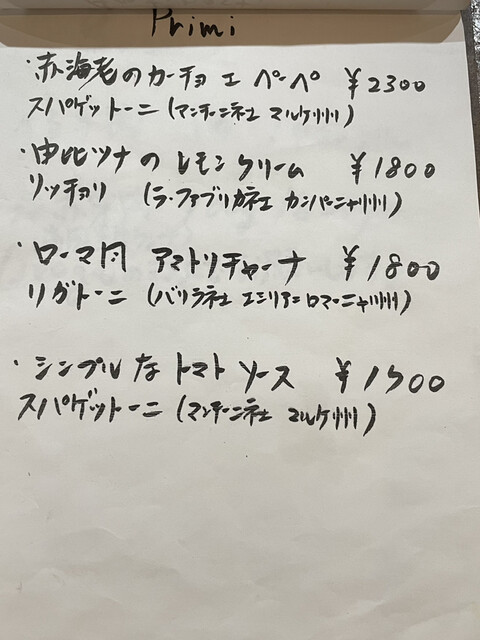 Primi
・赤海老のカーチョ エ ペーペ ¥2300
スパゲットーニ (マンチーニ社 マルケ州)
・由比ツナの レモンクリーム ¥1800
リッチョリ (ラ・ファブリカ社 カンパーニャ州)
・ローマ風 アマトリチャーナ ¥1800
リガトーニ (バリラ社 エミリア=ロマーニャ州)
・シンプルな トマト ソース ¥1500
スパゲットーニ (マンチーニ社 マルケ州)